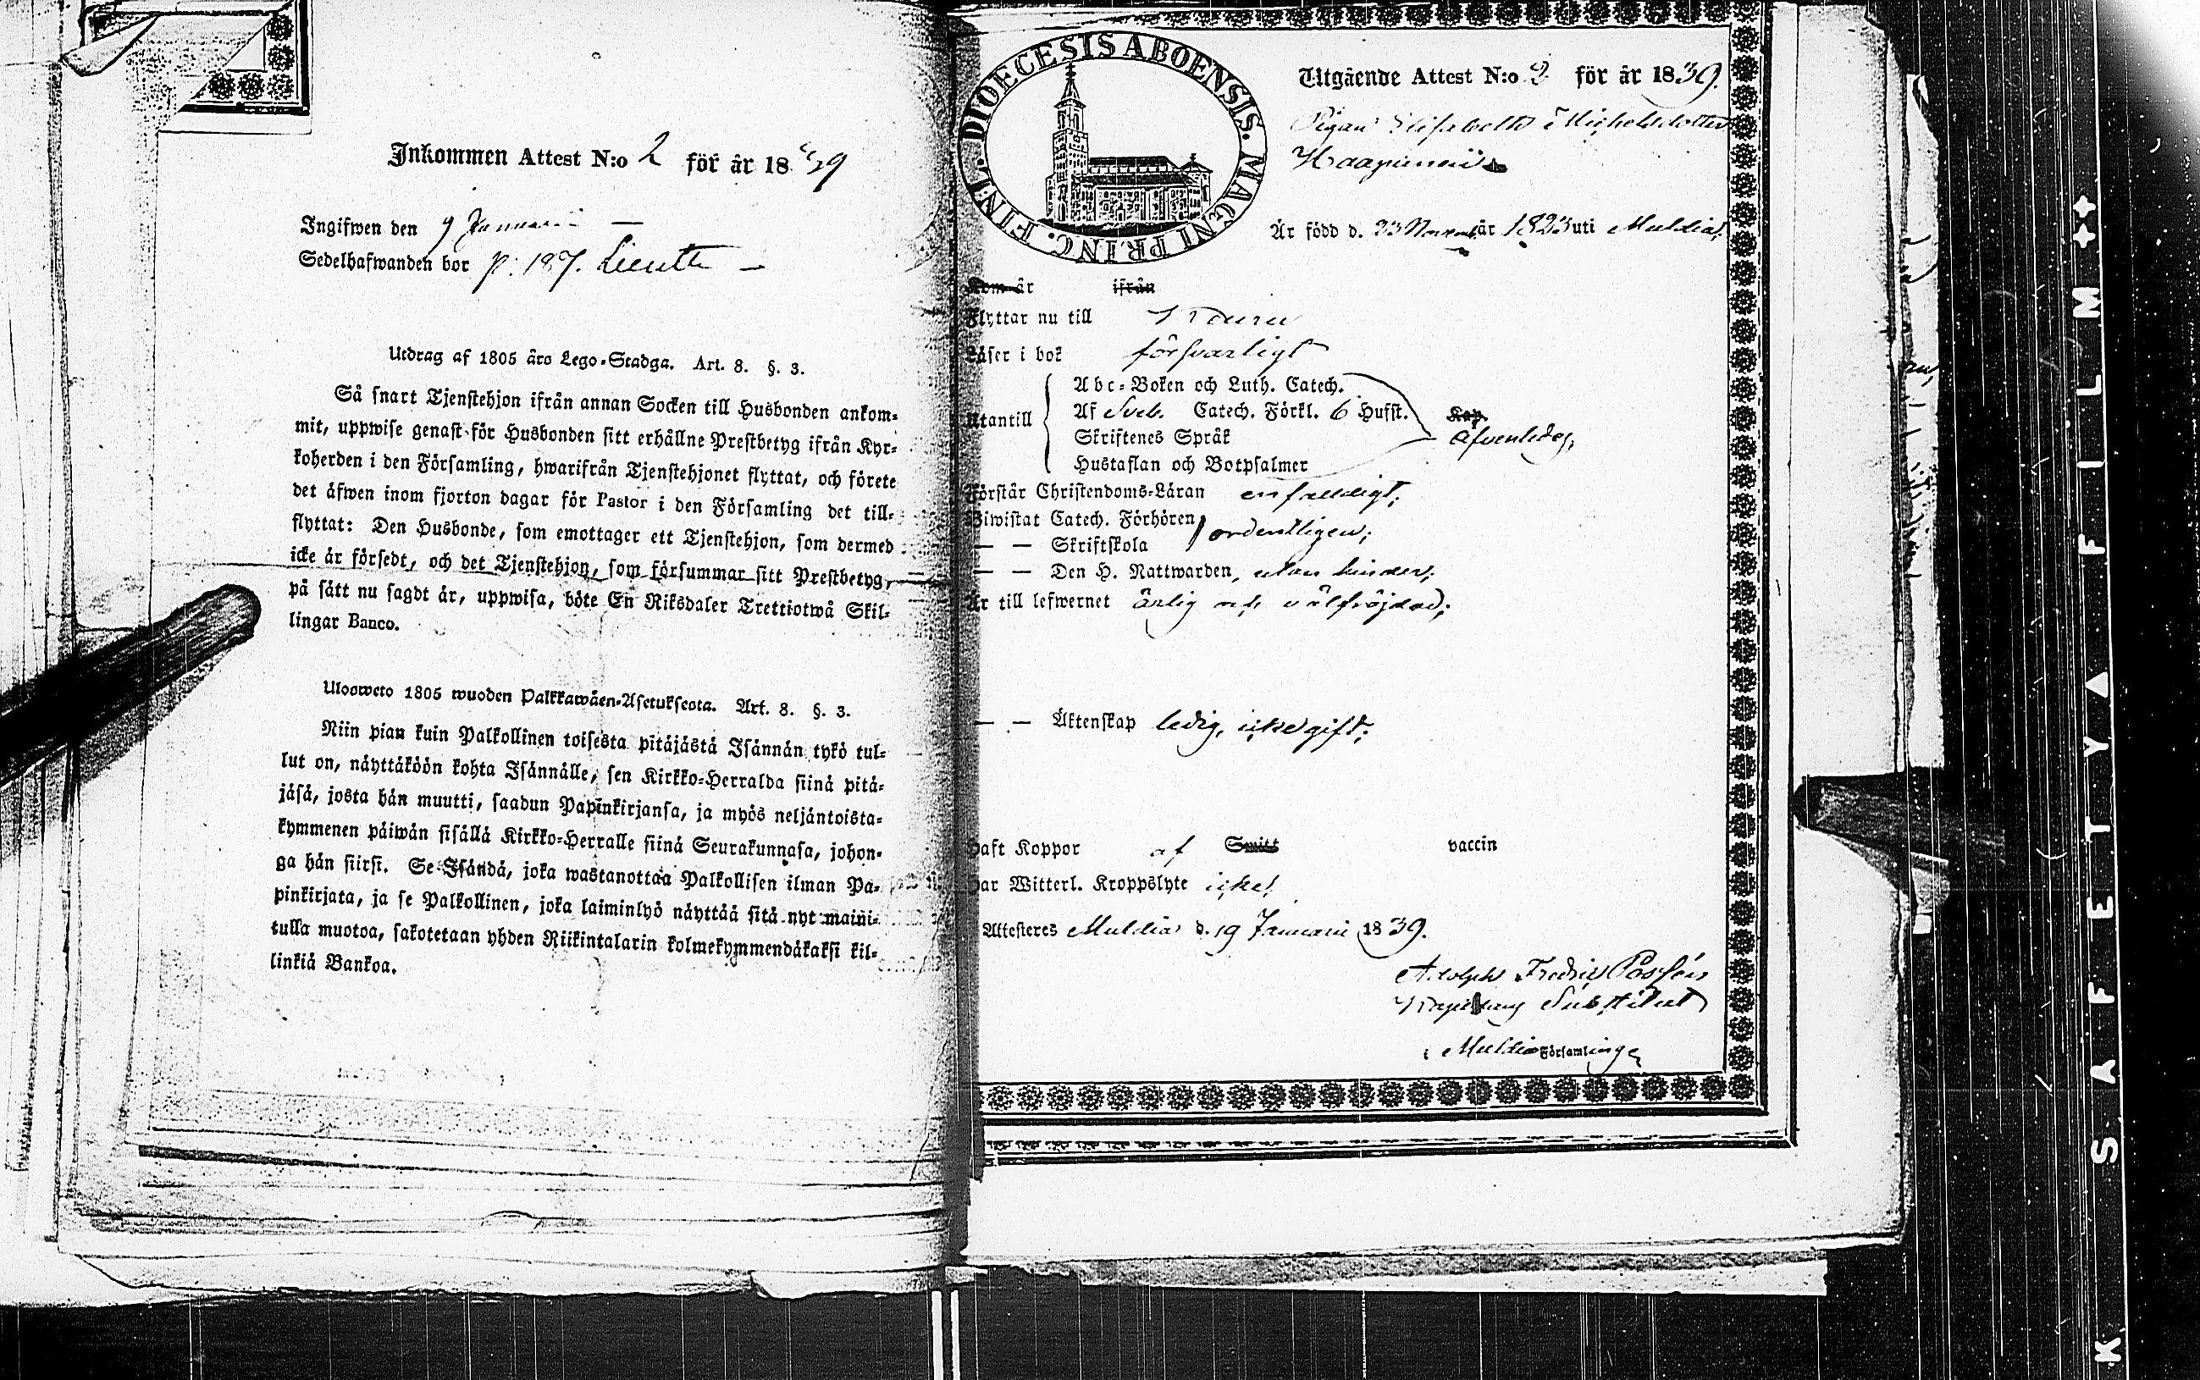 Inkommen Attest N:o 2 för år 1839
Ingifwen den 9 Januari —
Sedelhafwanden bor p. 187. —
Utdrag af 1805 års Lego-Stadga. Art. 8. §. 3.
Så snart Tjenstehjon ifrån annan Socken till Husbonden ankom-
mit, uppwise genast för Husbonden sitt erhållne Prestbetyg ifrån Kyr-
koherden i den Församling, hwarifrån Tjenstehjonet flyttat, och förete
det äfwen inom fjorton dagar för Pastor i den Församling det till-
flyttat: Den Husbonde, som emottager ett Tjenstehjon, som dermed
icke är försedt, och det Tjenstehjon, som försummar sitt Prestbetyg,
på sätt nu sagdt är, uppwisa, böte En Riksdaler Trettiotwå Skil-
lingar Banco.
Ulosweto 1805 wuoden Palkkawäen-Asetuksesta. Art. 8. §. 3.
Niin pian kuin Palkollinen toisesta pitäjästä Isännän tykö tul-
lut on, näyttäköön kohta Isännälle, sen Kirkko-Herralda siinä pitä-
jäsä, josta hän muutti, saadun Papinkirjansa, ja myös neljäntoista-
kymmenen päiwän sisällä Kirkko-Herralle siinä Seurakunnasa, johon-
ga hän siirsi. Se Isändä, joka wastanottaa Palkollisen ilman Pa-
pinkirjata, ja se Palkollinen, joka laiminlyö näyttää sitä nyt maini-
tulla muotoa, sakotetaan yhden Riikintalarin kolmekymmendäkaksi kil-
linkiä Bankoa.
FINL. DIOECESIS ABOENSIS. MAGNI PRINC.
Utgående Attest N:o 2 för år 1839.
Pigan Elisabeth Michelsdotter
Haapimäi
Är född d. 23 Novemb. år 1823 uti Muldia,
Kom år ifrån
Flyttar nu till
Läser i bok försvarligt
Utantill
Abc-Boken och Luth. Catech.
Af Sveb. Catech. Förkl. 6 Hufst. Kap.
Skriftenes Språk afvenledes,
Hustaflan och Botpsalmer
Förstår Christendoms-Läran enfaldigt,
Biwistat Catech. Förhören ordentligen,
— — Skriftskola
— — Den H. Nattwarden, utan hinder,
Är till lefwernet ärlig och välfräjdad,
— — Äktenskap ledig, icke gift,
Haft Koppor af Smitt vaccin
Har Witterl. Kroppslyte icke,
Attesteres Muldia d. 19 Januari 1839.
Adolph Fredric Possén
Substitut
i Muldia Församling
K SAFETY FILM